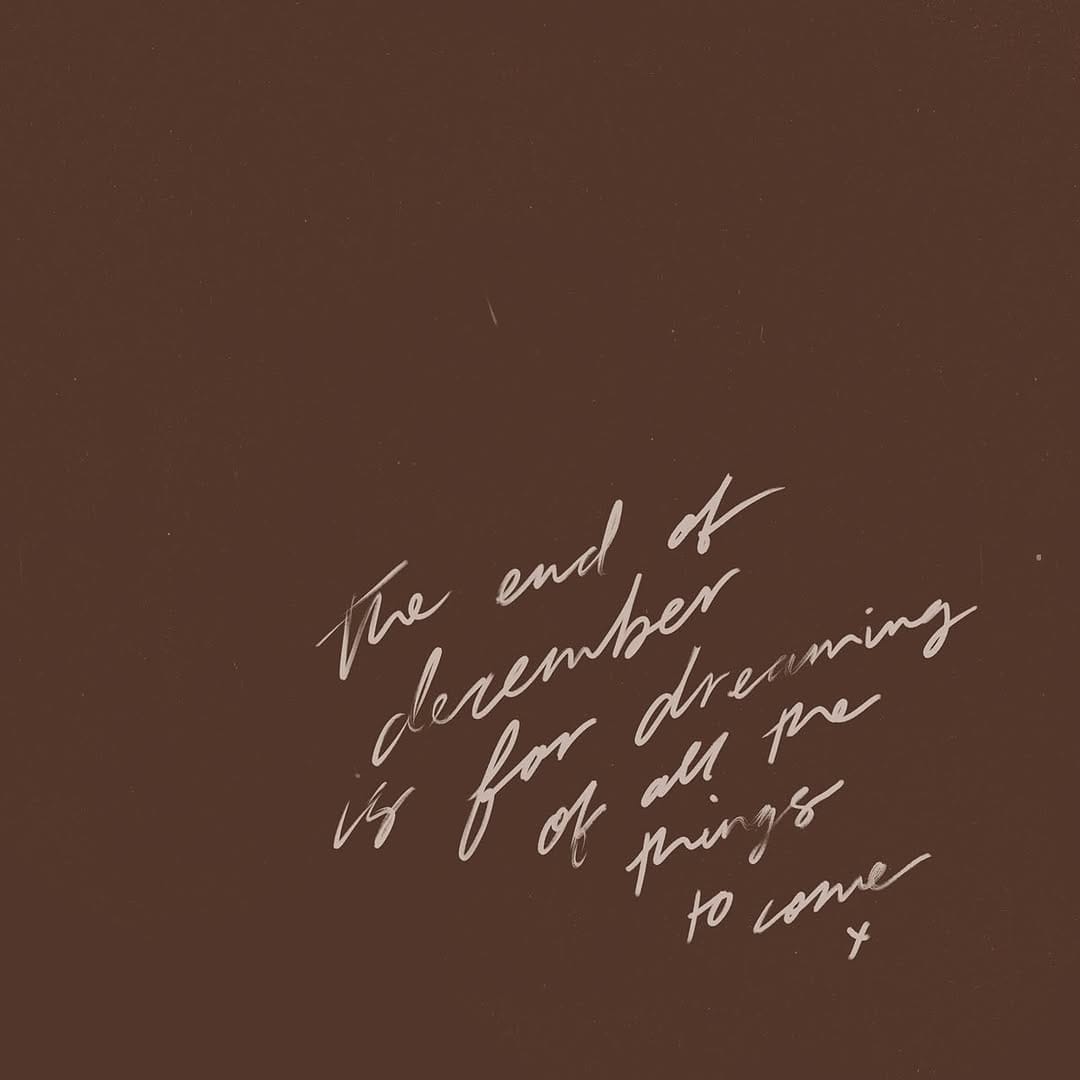 The end of
december
is for dreaming
of all the
things
to come
x